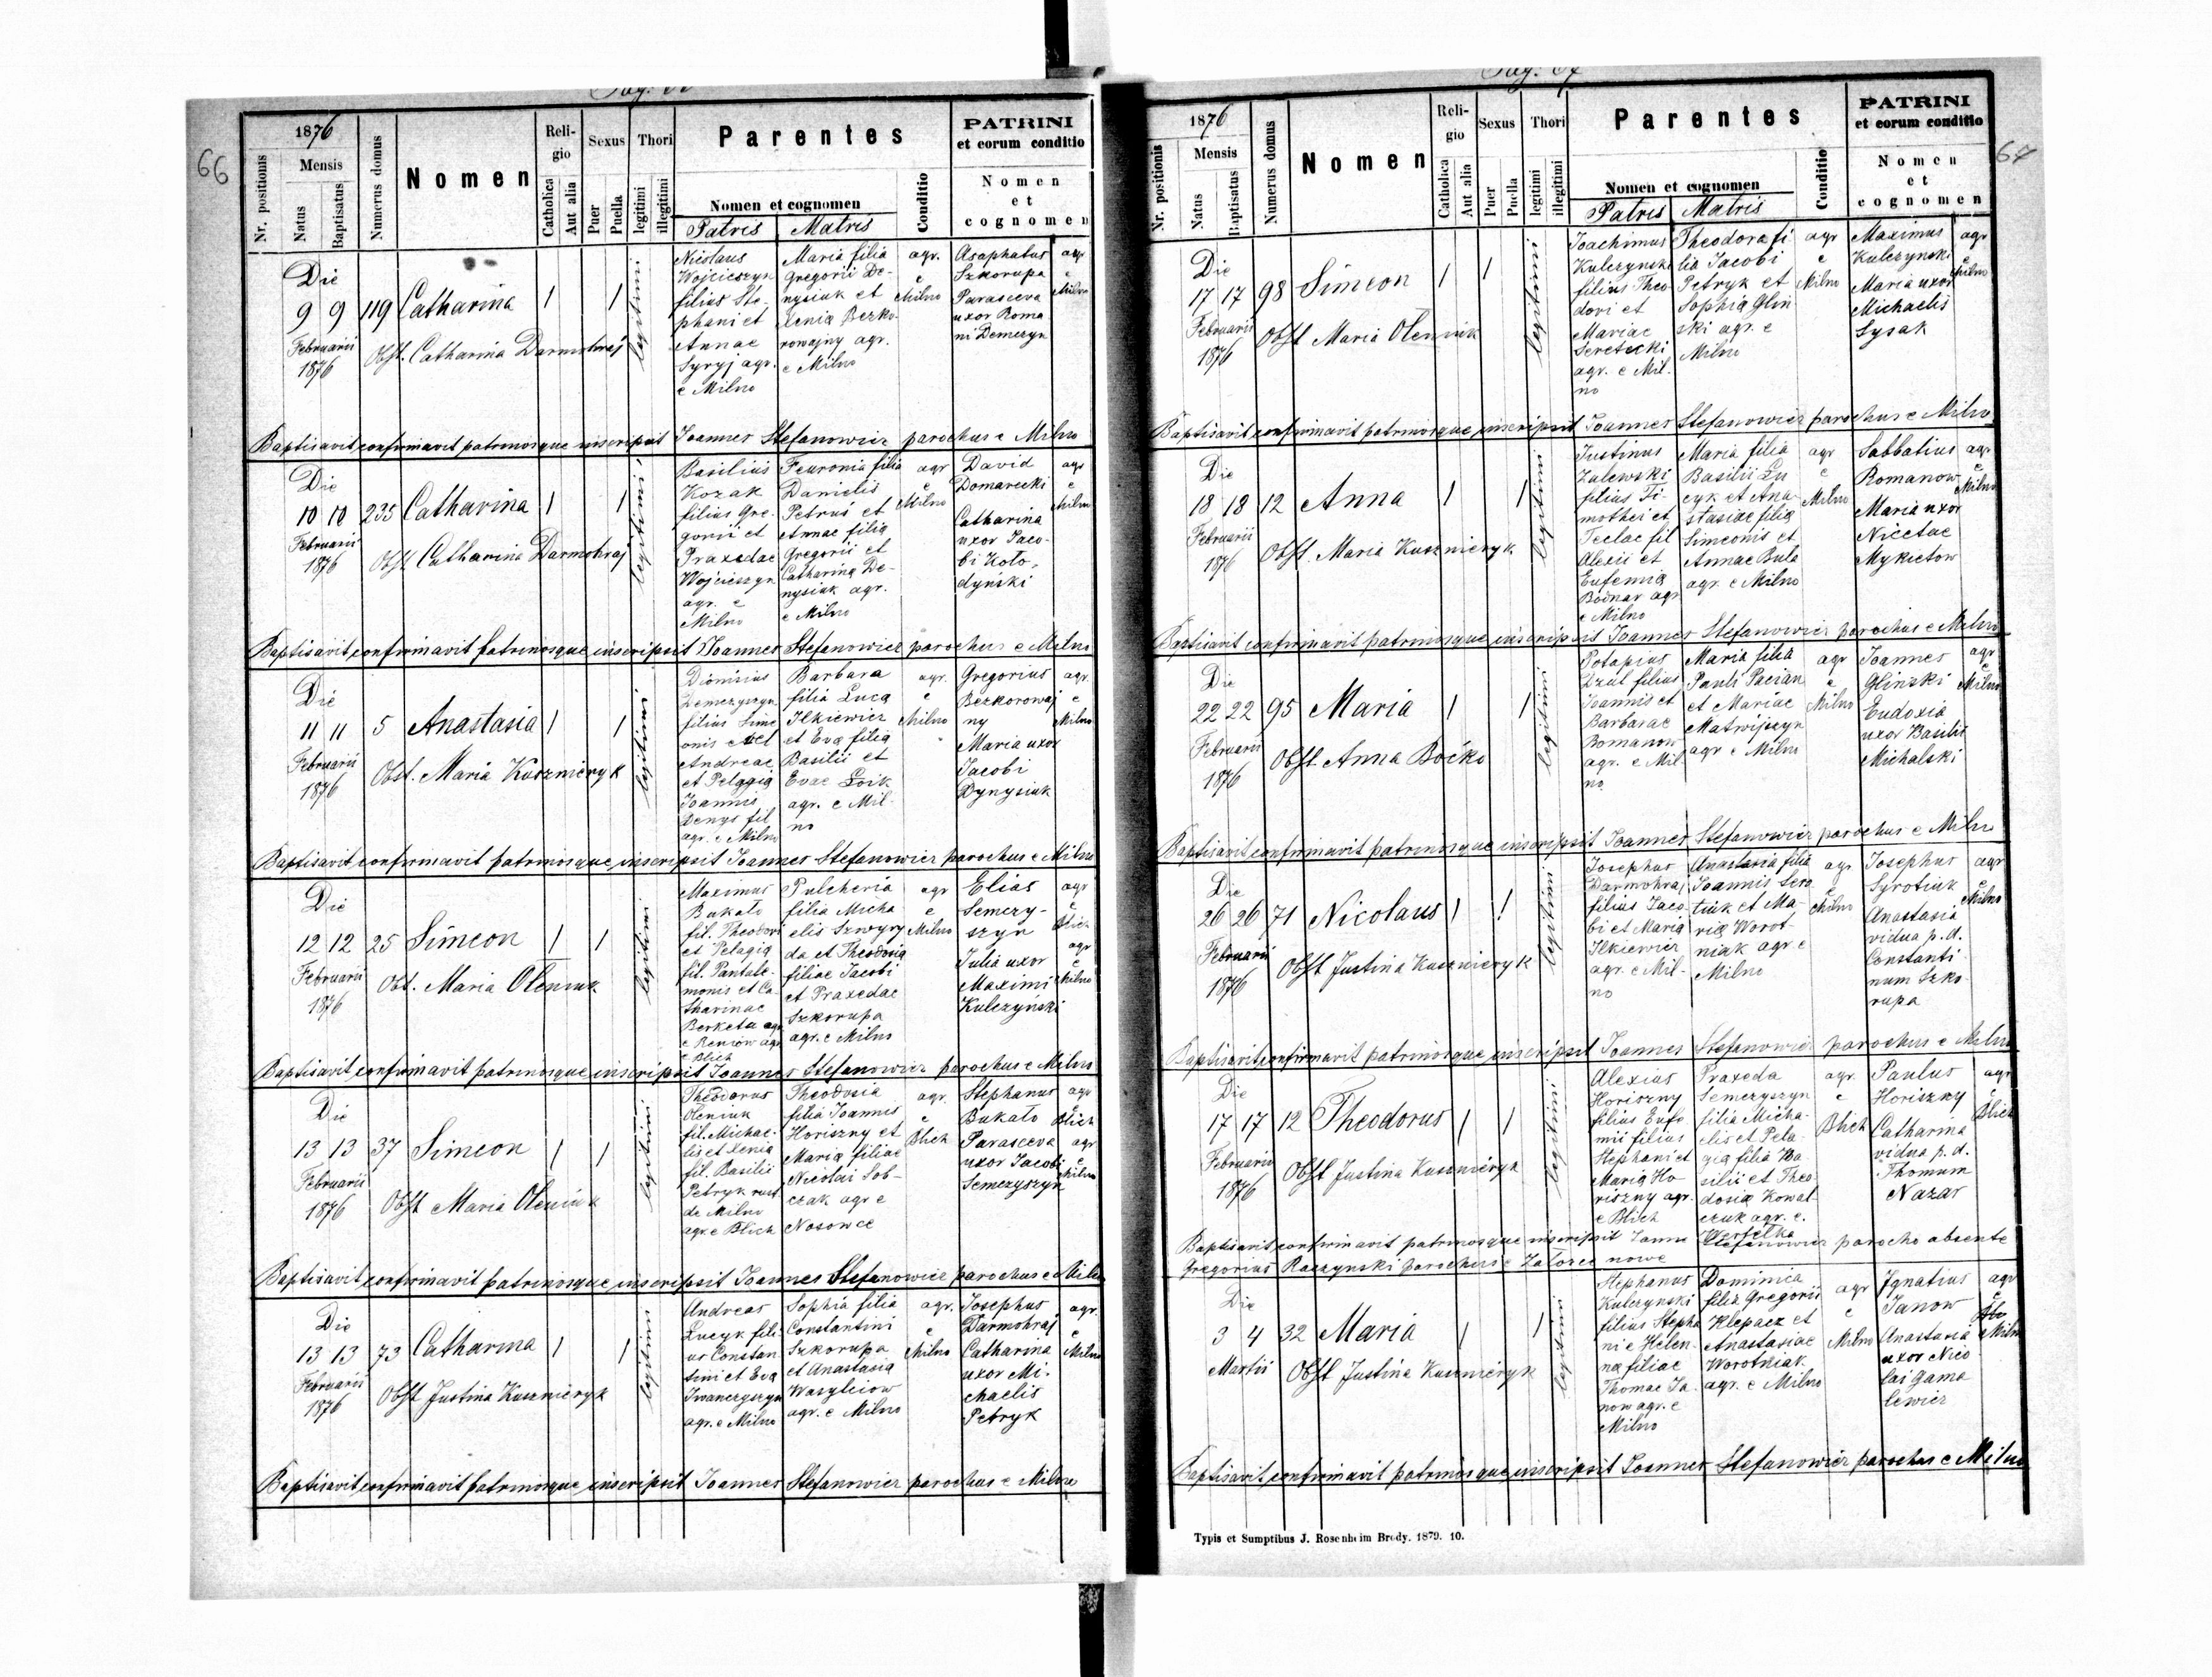 66
1876
Mensis
Nr. positionis
Natus
Baptisatus
Numerus domus
Nomen
Religio
Catholica
Aut alia
Sexus
Puer
Puella
Thori
legitimi
illegitimi
Parentes
Nomen et cognomen
Patris
Matris
Conditio
PATRINI
et eorum conditio
Nomen
et
cognomen
Die
9 9 119 Catharina 1 1 legitimi
Februarii
1876
Obst. Catharina Darmohraj
Nicolaus
Wojcieszyn
filius Ste-
phani et
Annae
Syryj agr.
e Milno
Maria filia
Gregorii De-
nysiuk et
Xenia Bezko-
rowajny agr.
e Milno
agr.
e
Milno
Asaphatus
Szkorupa
Parasceva
uxor Roma
ni Demczyn
agr
e
Milno
Baptisavit confirmavit patrinosque inscripsit Joannes Stefanowicz parochus e Milno
Die
10 10 235 Catharina 1 1 legitimi
Februarii
1876
Obst Catharina Darmohraj
Basilius
Kozak
filius Gre-
gorii et
Praxedae
Wojcieszyn
agr. e
Milno
Feuronia filia
Danielis
Petrus et
Annae filia
Gregorii et
Catharina De-
nysiuk agr.
e Milno
agr
e
Milno
David
Domarecki
Catharina
uxor Jaco-
bi Koło-
dyński
agr
e
Milno
Baptisavit confirmavit patrinosque inscripsit Joannes Stefanowicz parochus e Milno
Die
11 11 5 Anastasia 1 1 legitimi
Februarii
1876
Obst. Maria Kusznieryk
Dionisius
Demczyszyn
filius Sime
onis
Andreae
et Pelagia
Joannis
Denys fil
agr. e Milno
Barbara
filia Luca
Ilkiewicz
et Eva filia
Basilii et
Evae Łoik
agr. e Mil-
no
agr.
e
Milno
Gregorius
Bezkorowaj
ny
Maria uxor
Jacobi
Dynysiuk
agr.
e
Milno
Baptisavit confirmavit patrinosque inscripsit Joannes Stefanowicz parochus e Milno
Die
12 12 25 Simeon 1 1 legitimi
Februarii
1876
Obst. Maria Oleniuk
Maximus
Bukato
fil. Theodori
et Pelagia
fil. Pantale-
monis et Ca-
tharinae
Berketa agr
e Reniow agr
e Blich
Pulcheria
filia Micha
elis Szwyry
da et Theodosia
filiae Jacobi
et Praxedae
Szkorupa
agr. e Milno
agr
e
Milno
Elias
Semery-
szyn
Julia uxor
Maximi
Kulczyński
agr
e
Blich
agr
e
Milno
Baptisavit confirmavit patrinosque inscripsit Joannes Stefanowicz parochus e Milno
Die
13 13 37 Simeon 1 1 legitimi
Februarii
1876
Obst Maria Oleniuk
Theodorus
Oleniuk
fil. Michae-
lis et Xenia
fil. Basilii
Petryk rust
de Milno
agr. e Blich
Theodosia
filia Joannis
Horiszny et
Maria filiae
Nicolai Sob-
czak agr e
Nosowce
agr.
e
Blich
Stephanus
Bukato
Parasceva
uxor Jacobi
Semczyszyn
agr
e
Blich
agr
e
Milno
Baptisavit confirmavit patrinosque inscripsit Joannes Stefanowicz parochus e Milno
Die
13 13 73 Catharina 1 1 legitimi
Februarii
1876
Obst Justina Kusznieryk
Andreas
Lucyk fili-
us Constan
tini et Eva
Iwanczyszyn
agr. e Milno
Sophia filia
Constantini
Szkorupa
et Anastasia
Wasylciow
agr. e Milno
agr.
e
Milno
Josephus
Darmohraj
Catharina
uxor Mi-
chaelis
Petryk
agr.
e
Milno
Baptisavit confirmavit patrinosque inscripsit Joannes Stefanowicz parochus e Milno
67
1876
Mensis
Nr. positionis
Natus
Baptisatus
Numerus domus
Nomen
Religio
Catholica
Aut alia
Sexus
Puer
Puella
Thori
legitimi
illegitimi
Parentes
Nomen et cognomen
Patris
Matris
Conditio
PATRINI
et eorum conditio
Nomen
et
cognomen
Die
17 17 98 Simeon 1 1 legitimi
Februarii
1876
Obst Maria Oleniuk
Joachimus
Kulczynski
filius Theo
dori et
Mariae
Seretecki
agr. e Mil-
no
Theodora fi
lia Jacobi
Petryk et
Sophia Glin
ski agr. e
Milno
agr
e
Milno
Maximus
Kulczynski
Maria uxor
Michaelis
Sysak
agr
e
Milno
Baptisavit confirmavit patrinosque inscripsit Joannes Stefanowicz parochus e Milno
Die
18 18 12 Anna 1 1 legitimi
Februarii
1876
Obst. Maria Kusznieryk
Justinus
Zalewski
filius Ti-
mothei et
Teclae fil
Alexii et
Eufemia
Bodnar agr
e Milno
Maria filia
Basilii Lu
cyk et Ana-
stasiae filia
Simeonis et
Annae Bula
agr. e Milno
agr
e
Milno
Sabbatius
Romanow
Maria uxor
Nicetae
Mykietow
agr
e
Milno
Baptisavit confirmavit patrinosque inscripsit Joannes Stefanowicz parochus e Milno
Die
22 22 95 Maria 1 1 legitimi
Februarii
1876
Obst Anna Boćko
Potapius
Dzul filius
Joannis et
Barbarae
Romanow
agr. e Mil
no
Maria filia
Pauli Pacian
et Mariae
Matwijszyn
agr e Milno
agr
e
Milno
Joannes
Glinski
Eudoxia
uxor Basilii
Michalski
agr
e
Milno
Baptisavit confirmavit patrinosque inscripsit Joannes Stefanowicz parochus e Milno
Die
26 26 71 Nicolaus 1 1 legitimi
Februarii
1876
Obst Justina Kusznieryk
Josephus
Darmohraj
filius Jaco-
bi et Maria
Ilkiewicz
agr. e Mil-
no
Anastasia filia
Joannis Sero
tiuk et Ma-
ria Worot-
niak agr. e
Milno
agr
e
Milno
Josephus
Syrotiuk
Anastasia
vidua p. d.
Constanti
num Szko-
rupa
agr
e
Milno
Baptisavit confirmavit patrinosque inscripsit Joannes Stefanowicz parochus e Milno
Die
17 17 12 Theodorus 1 1 legitimi
Februarii
1876
Obst Justina Kusznieryk
Alexius
Horiszny
filius Eufe
mii filius
Stephani et
Maria Ho
riszny agr.
e Blich
Praxeda
Semczyszyn
filia Micha-
elis et Pela-
gia filia Ba-
silii et Theo
dosia Kowal
czuk agr. e.
Wertelka
agr.
e
Blich
Paulus
Horiszny
Catharina
vidua p. d.
Thomum
Nazar
agr
e
Blich
Baptisavit confirmavit patrinosque inscripsit Stefanowicz parocho absente
Gregorius Raczynski parochus e Założce nowe
Die
3 4 32 Maria 1 1 legitimi
Martii
Obst Justina Kusznieryk
Stephanus
Kulczynski
filius Stepha
ni e Helen-
na filiae
Thomae Ja-
now agr. e
Milno
Dominica
filia Gregorii
Klepacz et
Anastasiae
Worotniak
agr. e Milno
agr
e
Milno
Ignatius
Janow
Anastasia
uxor Nico
lai Gama
lewicz
agr
e
Milno
Baptisavit confirmavit patrinosque inscripsit Joannes Stefanowicz parochus e Milno
Typis et Sumptibus J. Rosenheim Brody. 1879. 10.